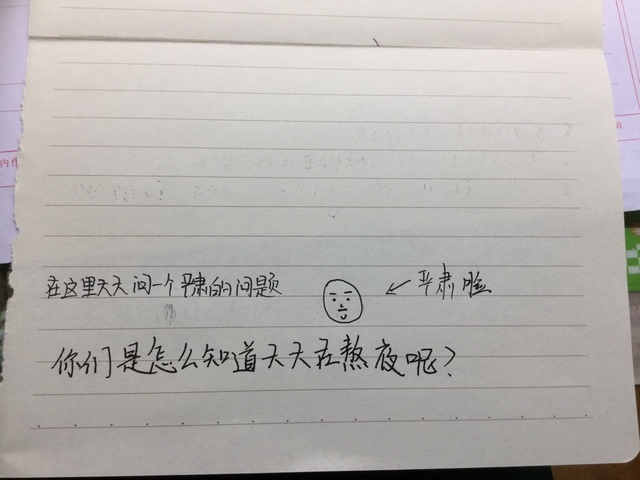 在这里天天问一个严肃的问题
← 严肃脸
你们是怎么知道天天在熬夜呢？
内作